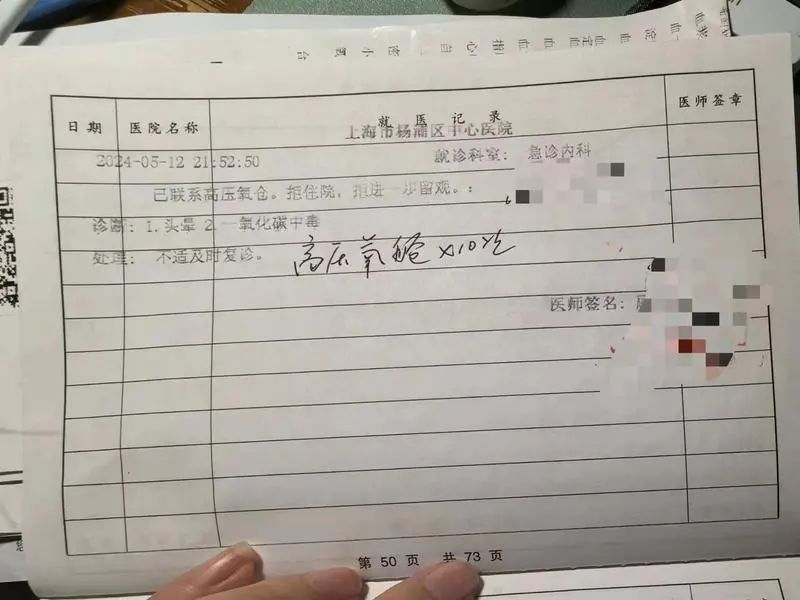 日期 医院名称 就医记录 医师签章
上海市杨浦区中心医院
2024-05-12 21:52:50 就诊科室: 急诊内科
已联系高压氧仓。拒住院,拒进一步留观。:
诊断: 1.头晕 2.一氧化碳中毒
处理: 不适及时复诊。 高压氧舱×10次
医师签名:
第 50 页 共 73 页